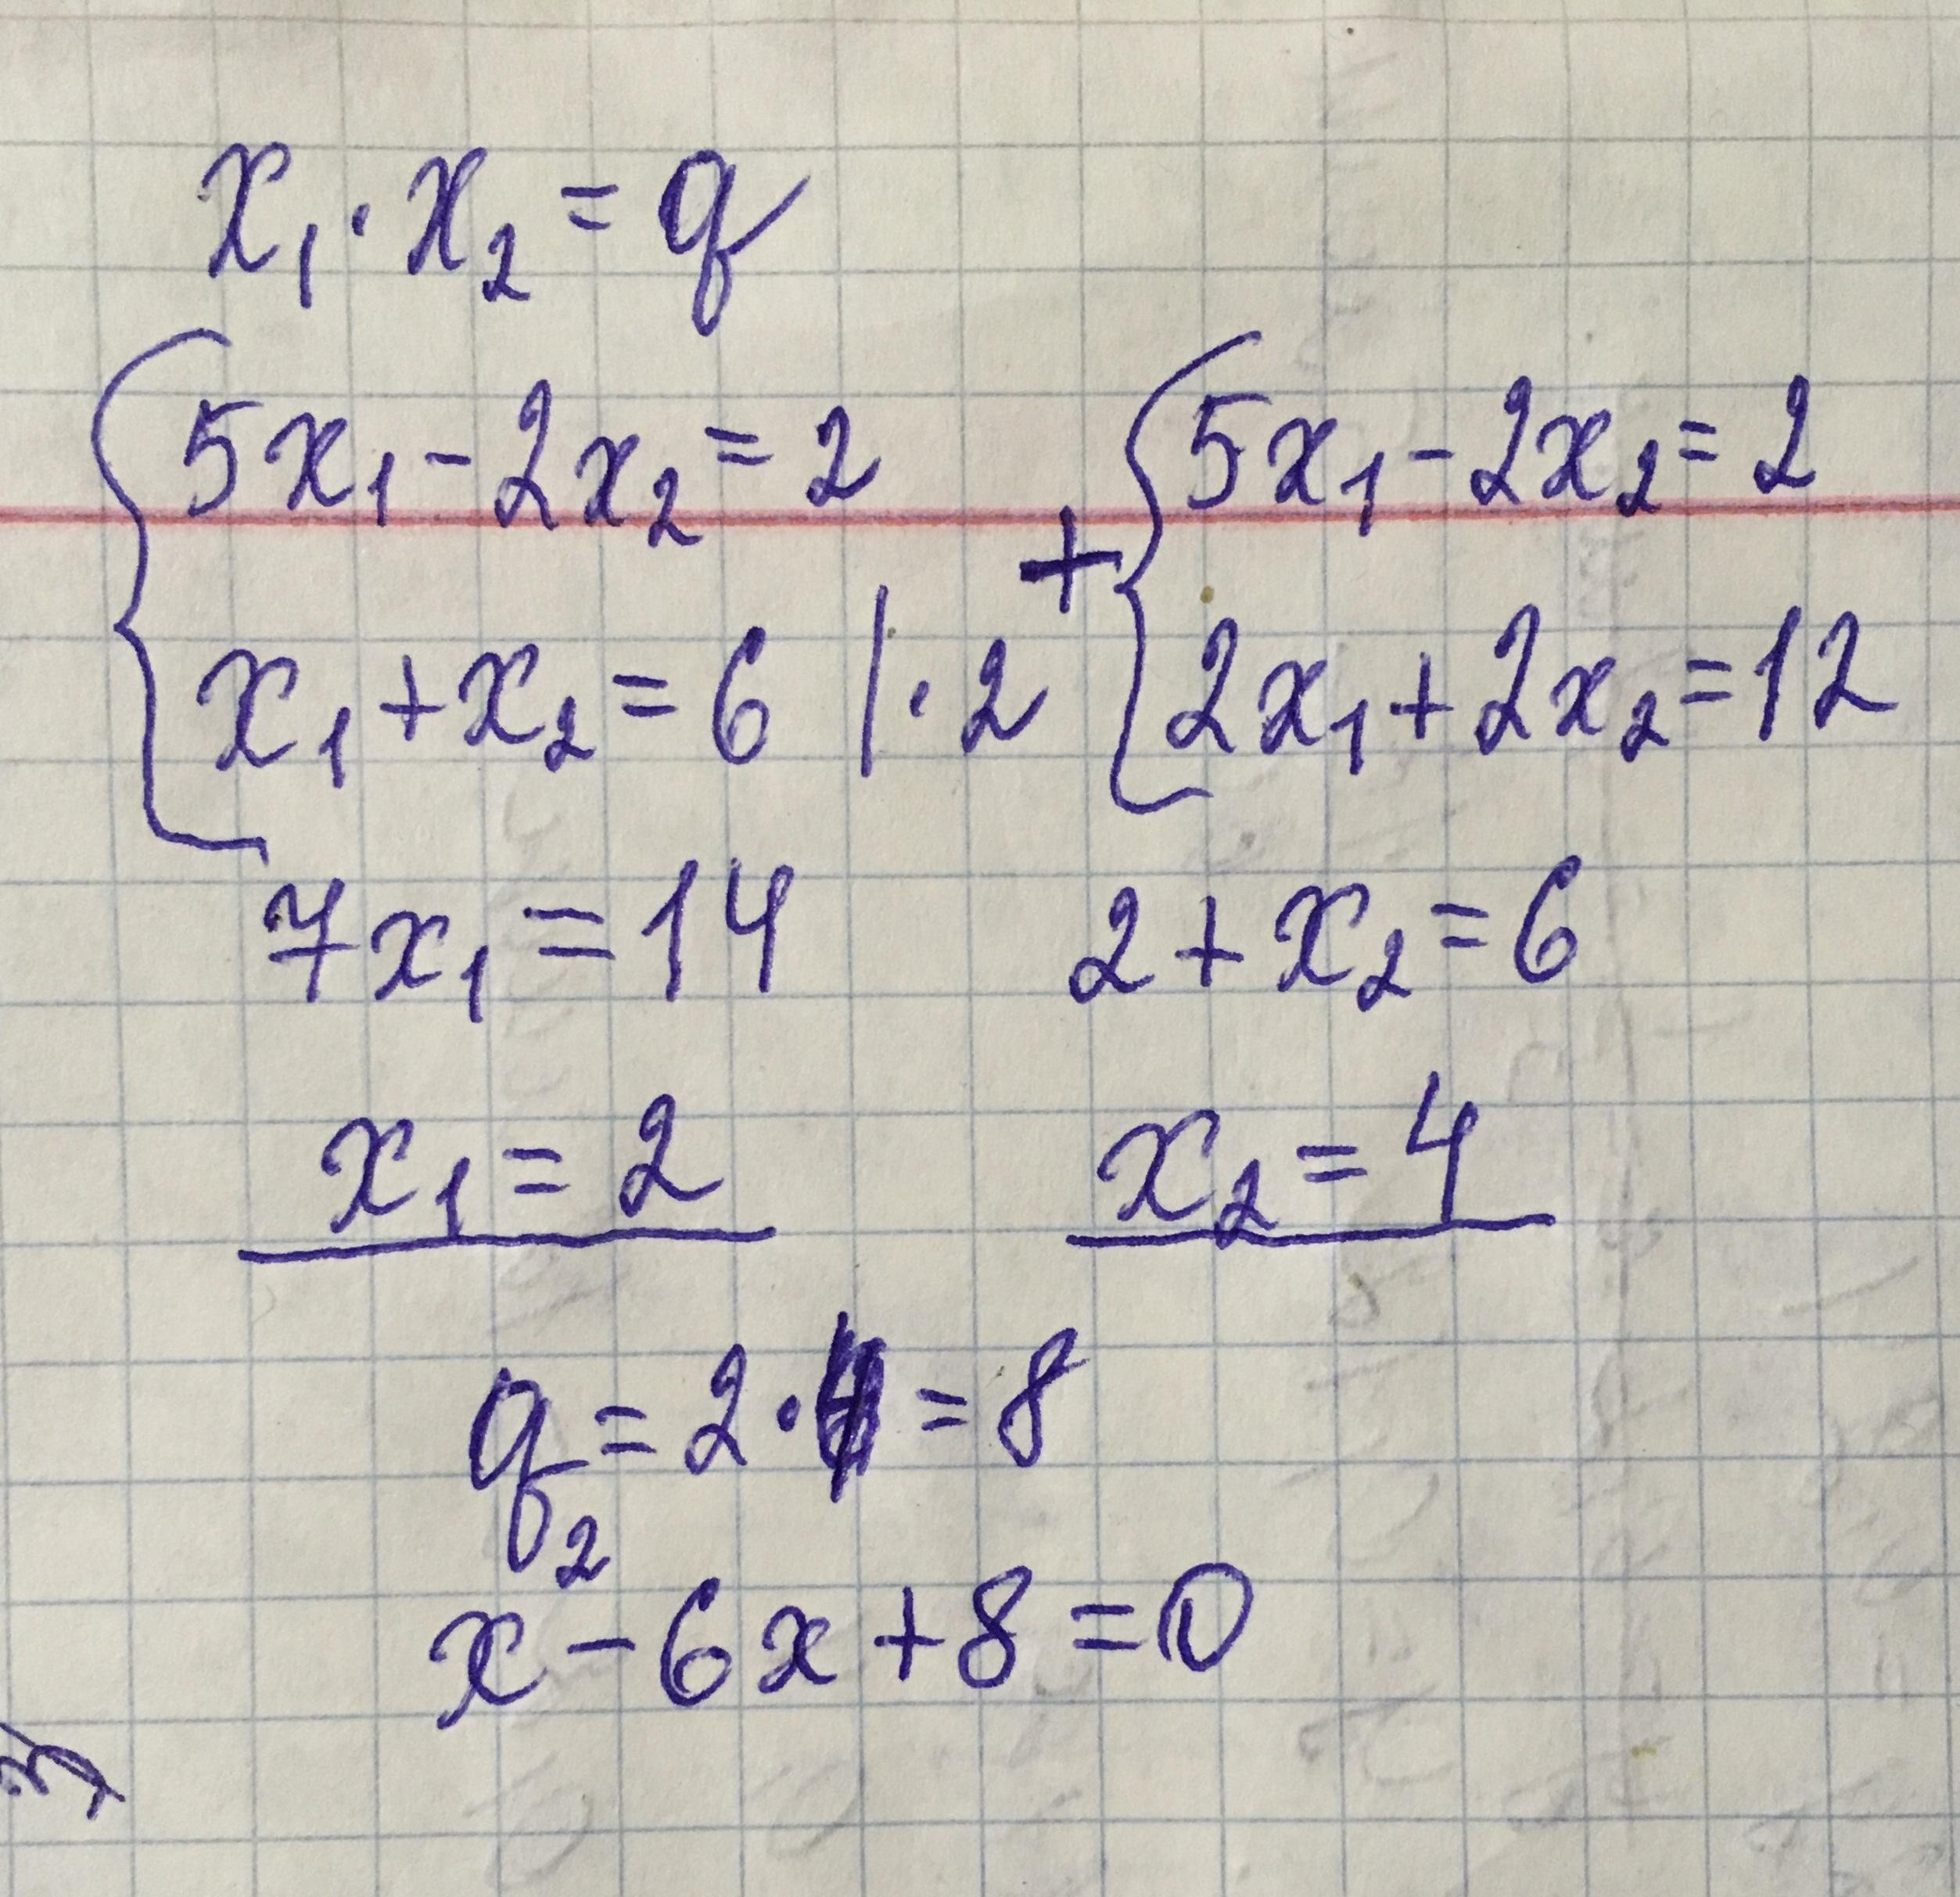 x₁ · x₂ = q
{ 5x₁ - 2x₂ = 2 + { 5x₁ - 2x₂ = 2
x₁ + x₂ = 6 | · 2 2x₁ + 2x₂ = 12
7x₁ = 14 2 + x₂ = 6
x₁ = 2 x₂ = 4
q = 2 · 4 = 8
x² - 6x + 8 = 0